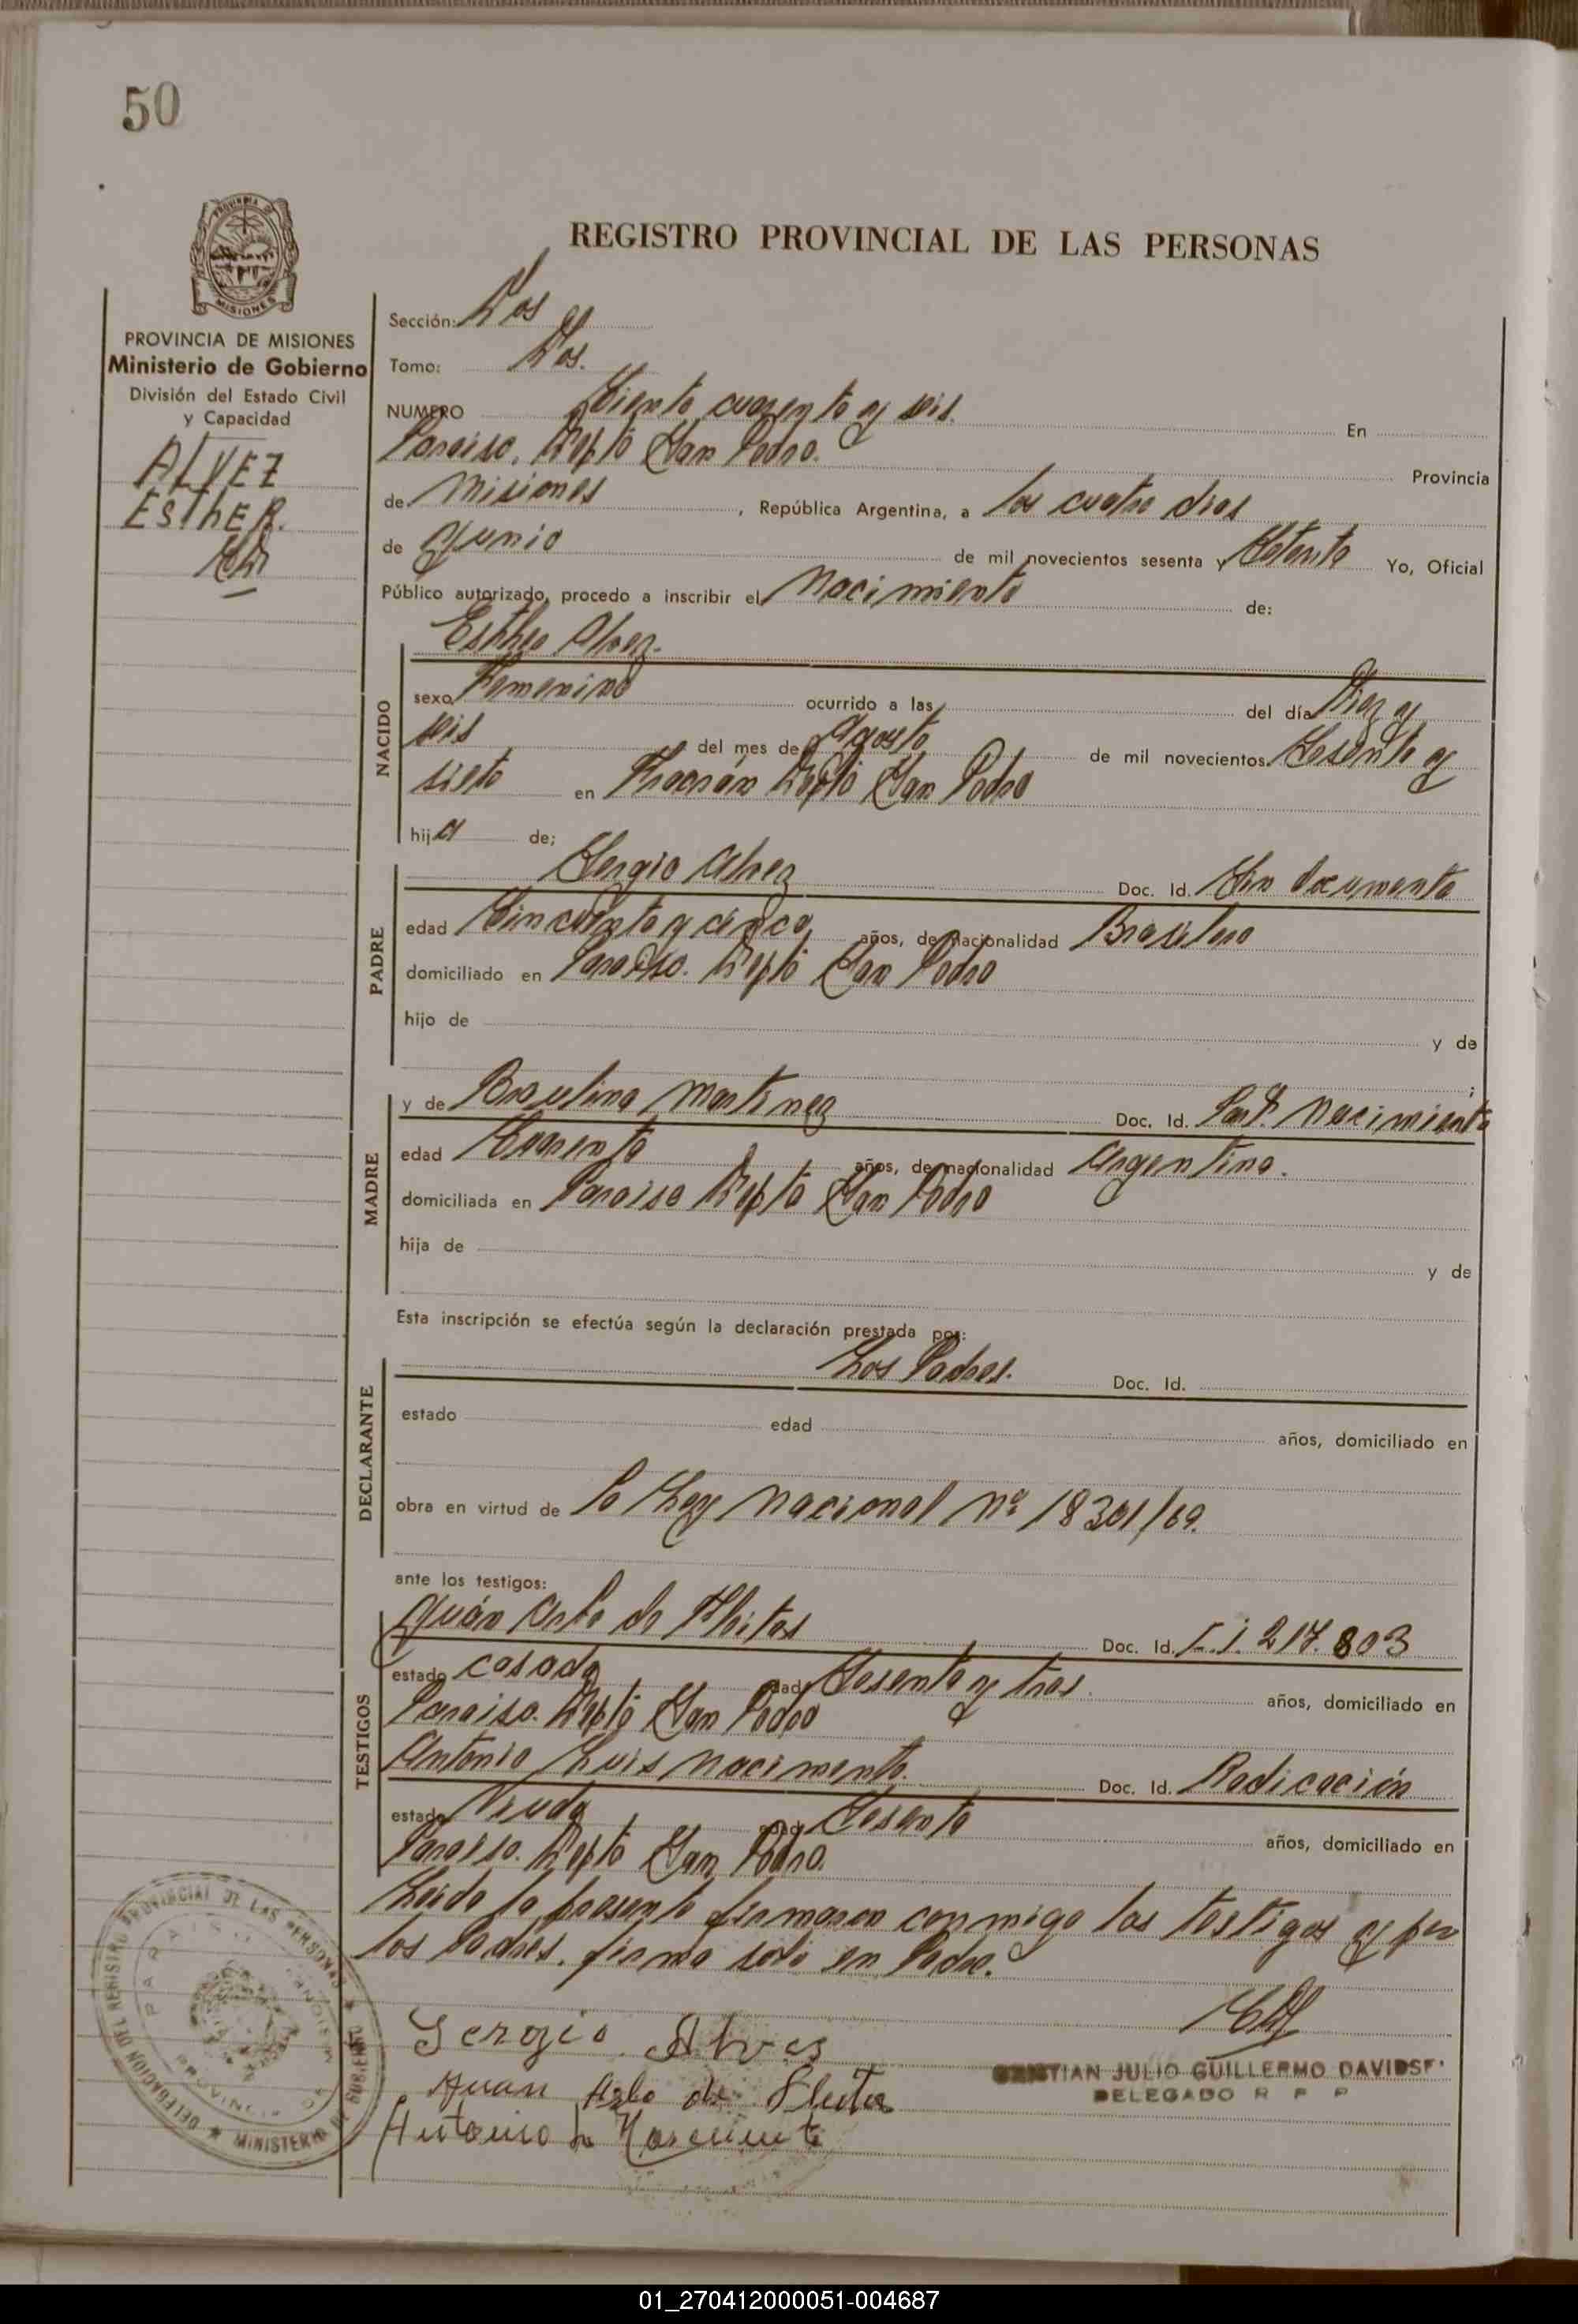 50
REGISTRO PROVINCIAL DE LAS PERSONAS
PROVINCIA DE MISIONES
Ministerio de Gobierno
División del Estado Civil
y Capacidad
ALVEZ
EsthER.
Sección: Dos
Tomo: Dos.
NUMERO Ciento cuarenta y seis. En
Paraiso. Depto San Pedro. Provincia
de Misiones, República Argentina, a los cuatro dias
de Junio de mil novecientos sesenta y Setenta Yo, Oficial
Público autorizado, procedo a inscribir el Nacimiento de:
Esther Alvez.
NACIDO
sexo Femenino ocurrido a las del día Diez y
seis del mes de Agosto de mil novecientos Sesenta y
siete en Fracrán Depto San Pedro
hija de;
PADRE
Sergio Alvez Doc. Id. Sin Documento
edad Cincuenta y cinco años, de nacionalidad Brasilero
domiciliado en Paraiso. Depto San Pedro
hijo de y de
;
MADRE
y de Braulina Martinez Doc. Id. Part. Nacimiento
edad Cuarenta años, de nacionalidad Argentina.
domiciliada en Paraiso Depto San Pedro
hija de y de
Esta inscripción se efectúa según la declaración prestada por:
DECLARANTE
Los Padres. Doc. Id.
estado edad años, domiciliado en
obra en virtud de La Ley Nacional Nº 18301/69.
ante los testigos:
TESTIGOS
Juán de Doc. Id. C.I. 217.803
estado casado edad Sesenta y tres. años, domiciliado en
Paraiso. Depto San Pedro
Antonio Luis Nacimento Doc. Id. Radicación
estado Viudo edad Sesenta años, domiciliado en
Paraiso. Depto San Pedro.
Leida la presente firmaron conmigo los testigos y por
los Padres. firma solo en Padre.
Sergio Alves
Juan de
Antonio L Nascimento
CRISTIAN JULIO GUILLERMO DAVIDS
DELEGADO R P P
DELEGACION DEL REGISTRO PROVINCIAL DE LAS PERSONAS
MINISTERIO DE GOBIERNO
PARAISO
PROVINCIA DE MISIONES
01_270412000051-004687